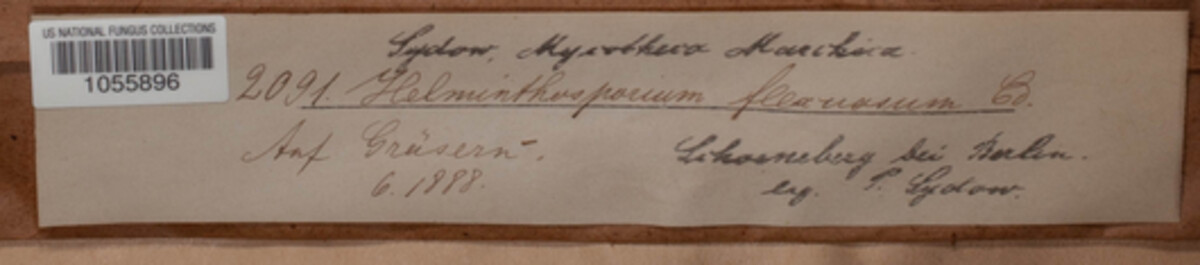 US NATIONAL FUNGUS COLLECTIONS
1055896
Sydow, Mycotheca Marchica
2091. Helminthosporium flexuosum Cd.
Auf Gräsern.
6. 1888.
Schoeneberg bei Berlin.
leg. P. Sydow.